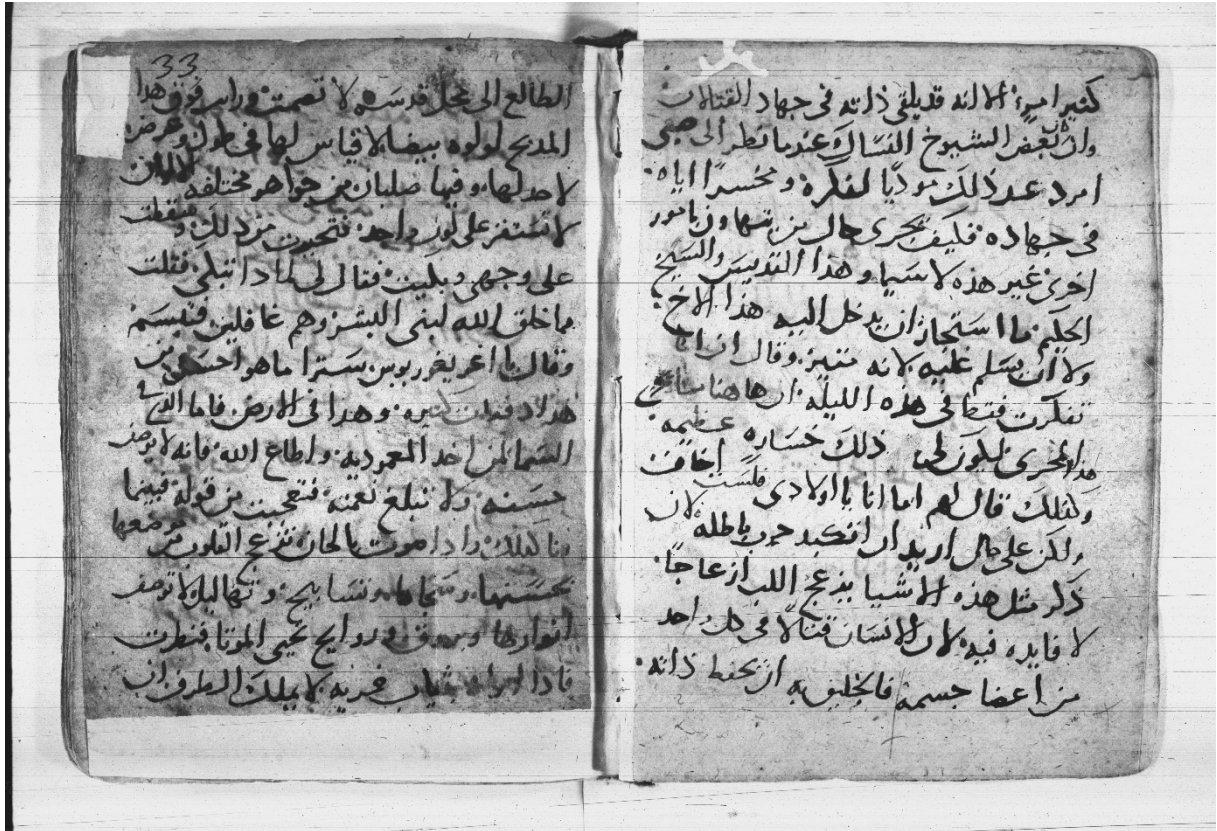 كثيرا مرة الا انه قد يلقى ذاته فى جهاد القتالات
وان بعض الشيوخ النساك عندما نظر الى صبى
امرد عد ذلك موديا لفكره ومخسرا اياه
فى جهاده فكيف يجرى حال من يتهاون بامور
اخرى غير هذه لا سيما وهذا القديس والشيخ
الحكيم ما استجاز ان يدخل اليه هذا الاخ
ولا ان يسلم عليه لانه متميز وقال ان انا
تفكرت فقط فى هذه الليله ان هاهنا
هذا المجرى ليكون لى ذلك خساره عظيمه
وكذلك قال لهم اما انا يا اولادى فلست اخاف
ولكن على حال اريد ان حرب باطله لان
ذكر مثل هذه الاشيا يزعج اللب ازعاجا
لا فايده فيه لان للانسان قتالا فى كل واحد
من اعضا جسمه فالخليق به ان يحفظ ذاته
33
الطالع الى محل قدسه لا تصمت ورايت فوق هذا
المذبح لولوه بيضا لا قياس لها فى طول وعرض
لا حد لها وفيها صلبان من جواهر مختلفه الالوان
لا تستقر على لون واحد فتحيرت من ذلك وسقطت
على وجهى وبكيت فقال لى لماذا تبكى فقلت
ما خلق الله لبنى البشر وهم غافلين فتبسم
وقال يا اغريغوريوس سترا ما هو احسن من
هذا دفعات كثيره وهدا فى الارض فاما الذى فى
السما لمن اخد المعموديه واطاع الله فانه لا يوصف
حسنه ولا تبلغ نعمته فتعجبت من قوله فبينما
انا كذلك واذا صوت بالحان تزعج القلوب من موضعها
بحسنها وتسابيح وتهاليل لا توصف
انوارها وروايح تحيى الموتا فنظرت
فاذا بثياب لا يملك الطرف ان